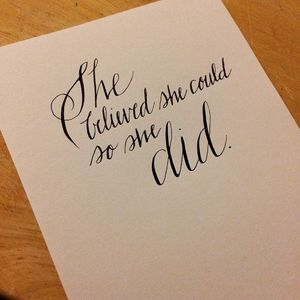 She
believed she could
so she
did.